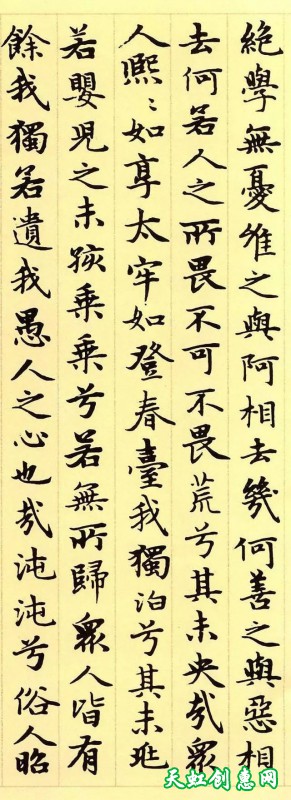 絕學無憂唯之與阿相去幾何善之與惡相
去何若人之所畏不可不畏荒兮其未央哉衆
人熙〻如享太牢如登春臺我獨泊兮其未兆
若嬰兒之未孩乘乘兮若無所歸衆人皆有
餘我獨若遺我愚人之心也哉沌沌兮俗人昭
天虹创惠网